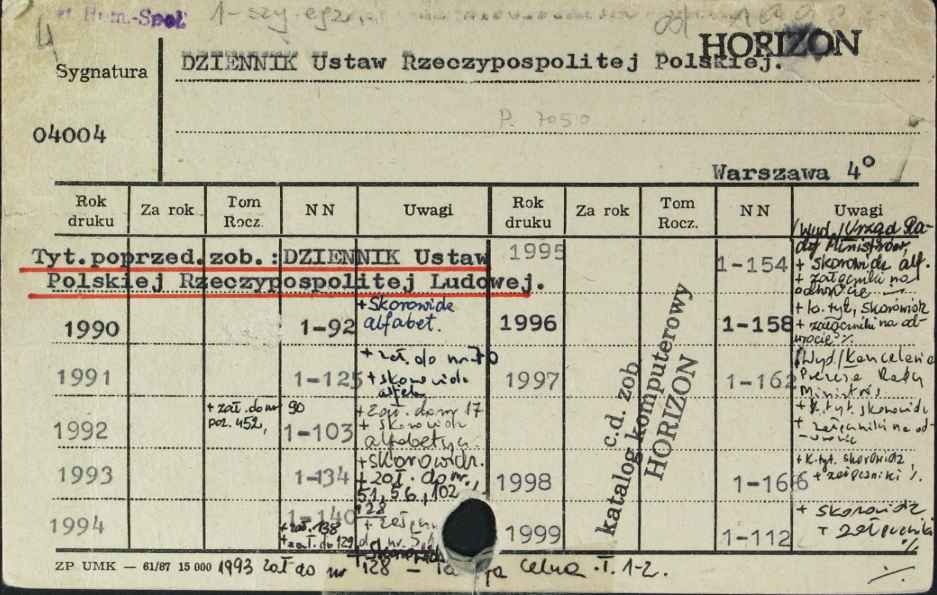 Hum.-Społ
1-szy egz.
HORIZON
Sygnatura
DZIENNIK Ustaw Rzeczypospolitej Polskiej.
04004
P. 7050
Warszawa 4°
Rok druku Za rok Tom Rocz. NN Uwagi Rok druku Za rok Tom Rocz. NN Uwagi
Tyt.poprzed.zob.:DZIENNIK Ustaw
Polskiej Rzeczypospolitej Ludowej.
1990 1-92 + Skorowidz alfabet.
1991 1-125 + zał. do nr 70 + skorowidz
1992 + zał. do nr 90 poz. 452, 1-103 + zał. do nr 17 + skorowidz
1993 1-134 + skorowidz. + zał. do nr, 51, 56, 102
1994 1-140 + zał. 138 + zał. do 129
1995 1-154 /Wyd./Urząd Rady Ministrów + skorowidz alf. + załączniki na odwrocie
1996 1-158 + k. tyt, skorowidz + załączniki na odwrocie %
1997 1-162 /Wyd/Kancelaria Prezesa Rady Ministrów + k. tyt. skorowidz + załączniki na odwrocie
1998 1-166 + k. tyt. skorowidz, + załączniki %.
1999 1-112 + skorowidz + załączniki %
c.d. zob
katalog komputerowy
HORIZON
ZP UMK — 61/87 15 000 1993 zał do nr 128 — celna T. 1-2.